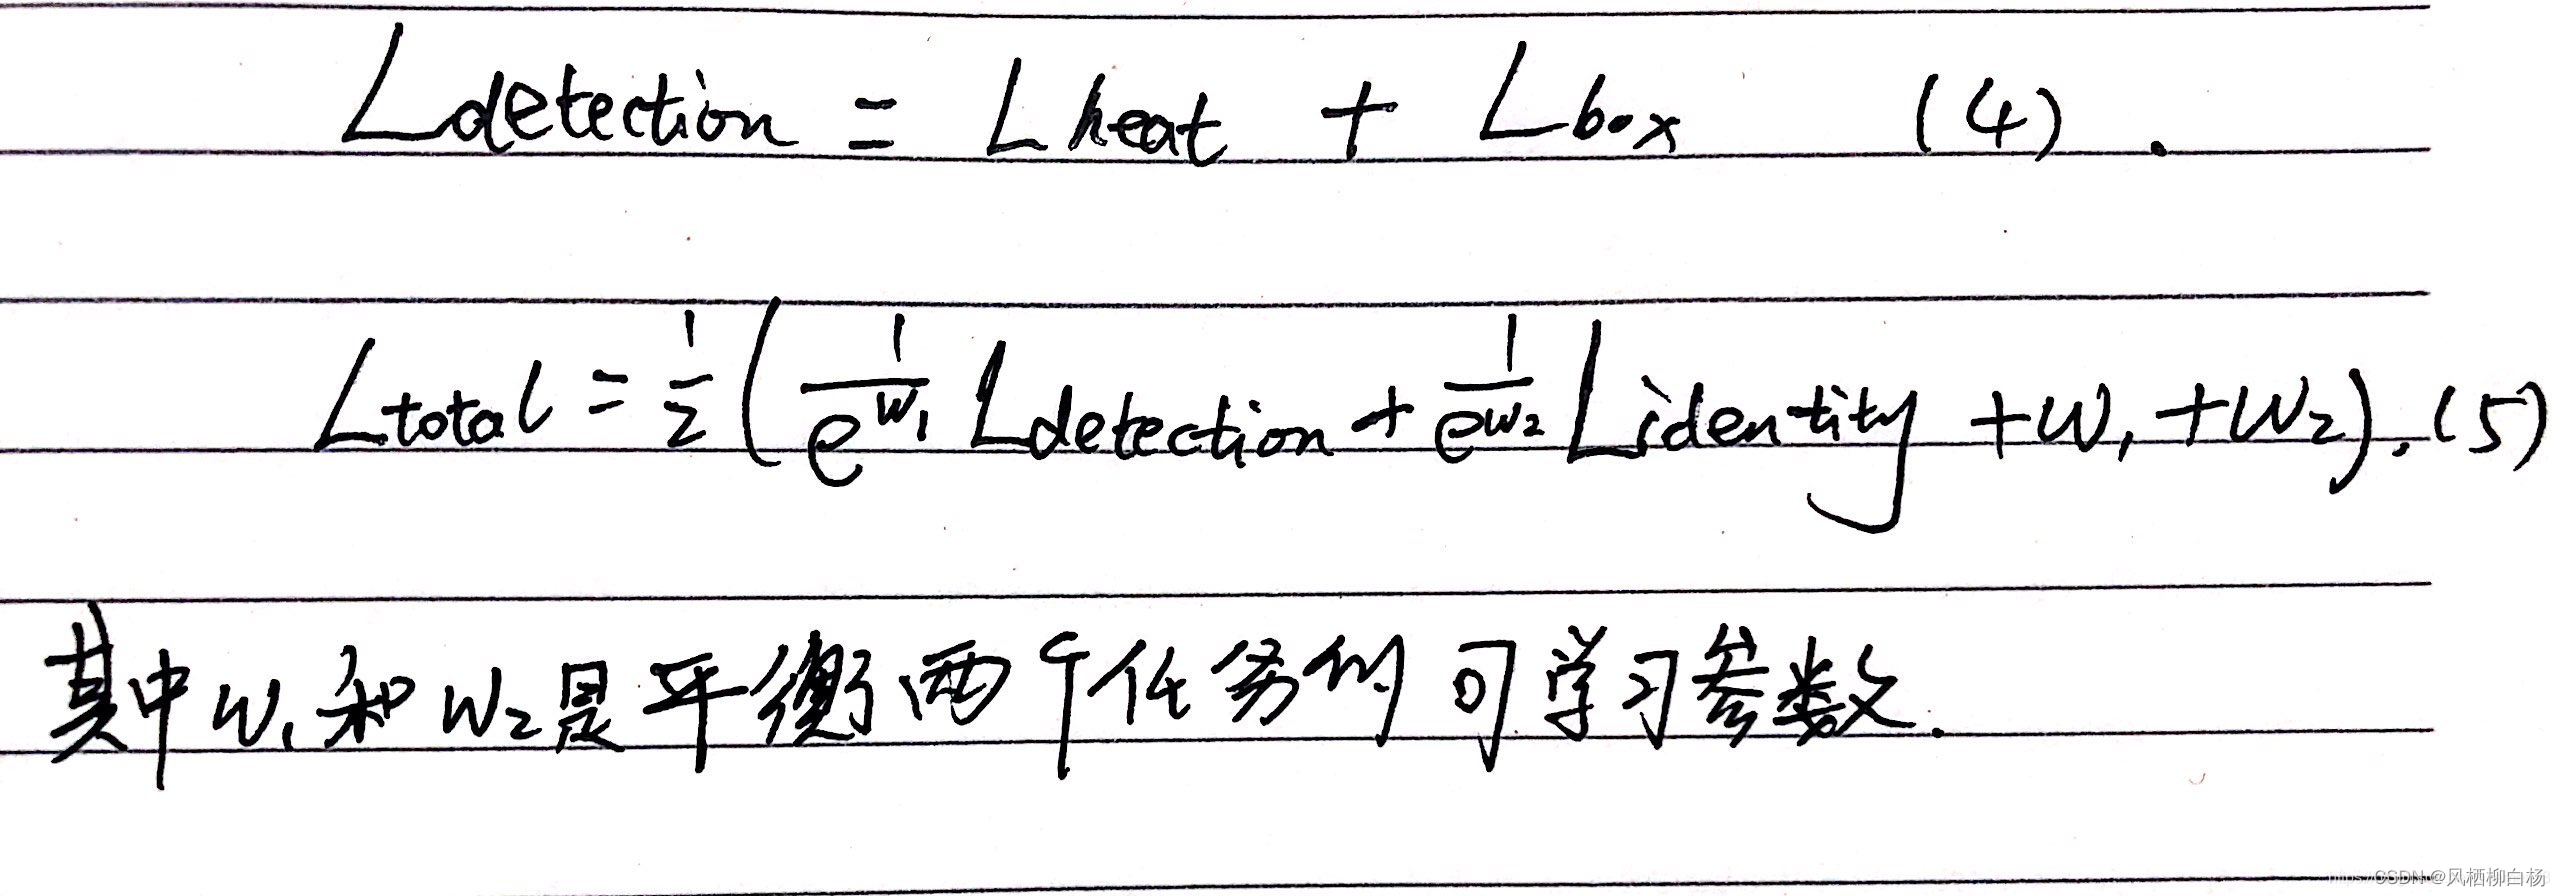 L_detection = L_heat + L_box (4).
L_total = 1/2 ( 1/e^{w_1} L_detection + 1/e^{w_2} L_identity + w_1 + w_2). (5)
其中 w_1 和 w_2 是平衡两个任务的可学习参数.
CSDN @风栖柳白杨